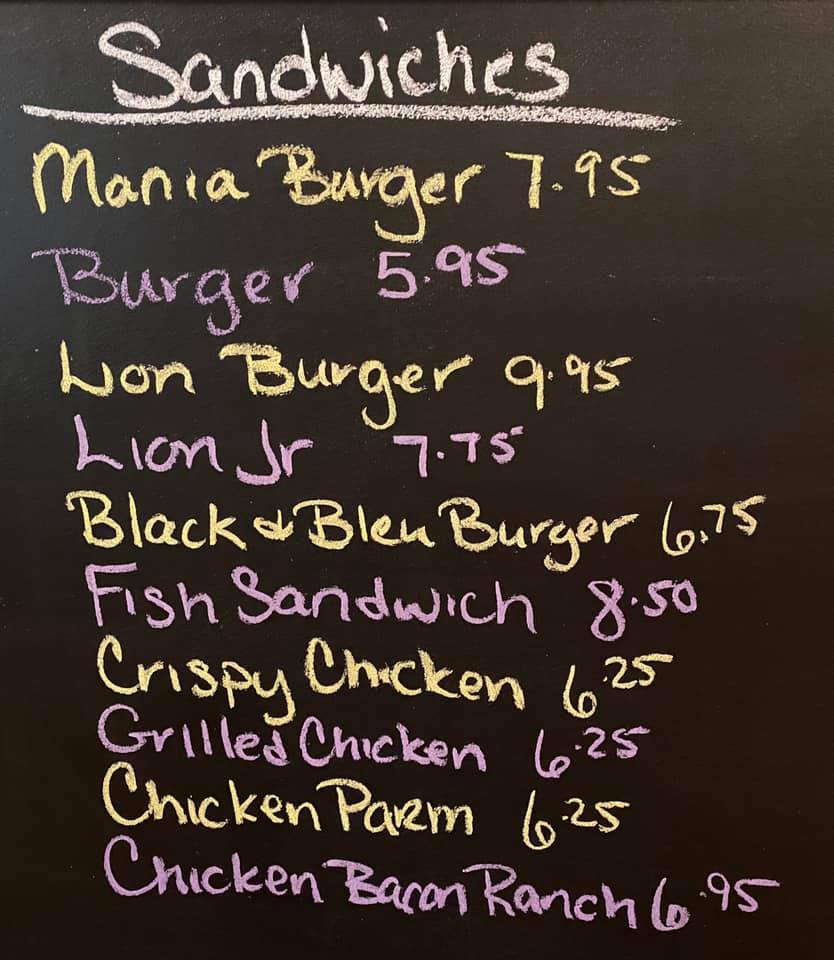 Sandwiches
Mania Burger 7.95
Burger 5.95
Lion Burger 9.95
Lion Jr 7.75
Black & Bleu Burger 6.75
Fish Sandwich 8.50
Crispy Chicken 6.25
Grilled Chicken 6.25
Chicken Parm 6.25
Chicken Bacon Ranch 6.95